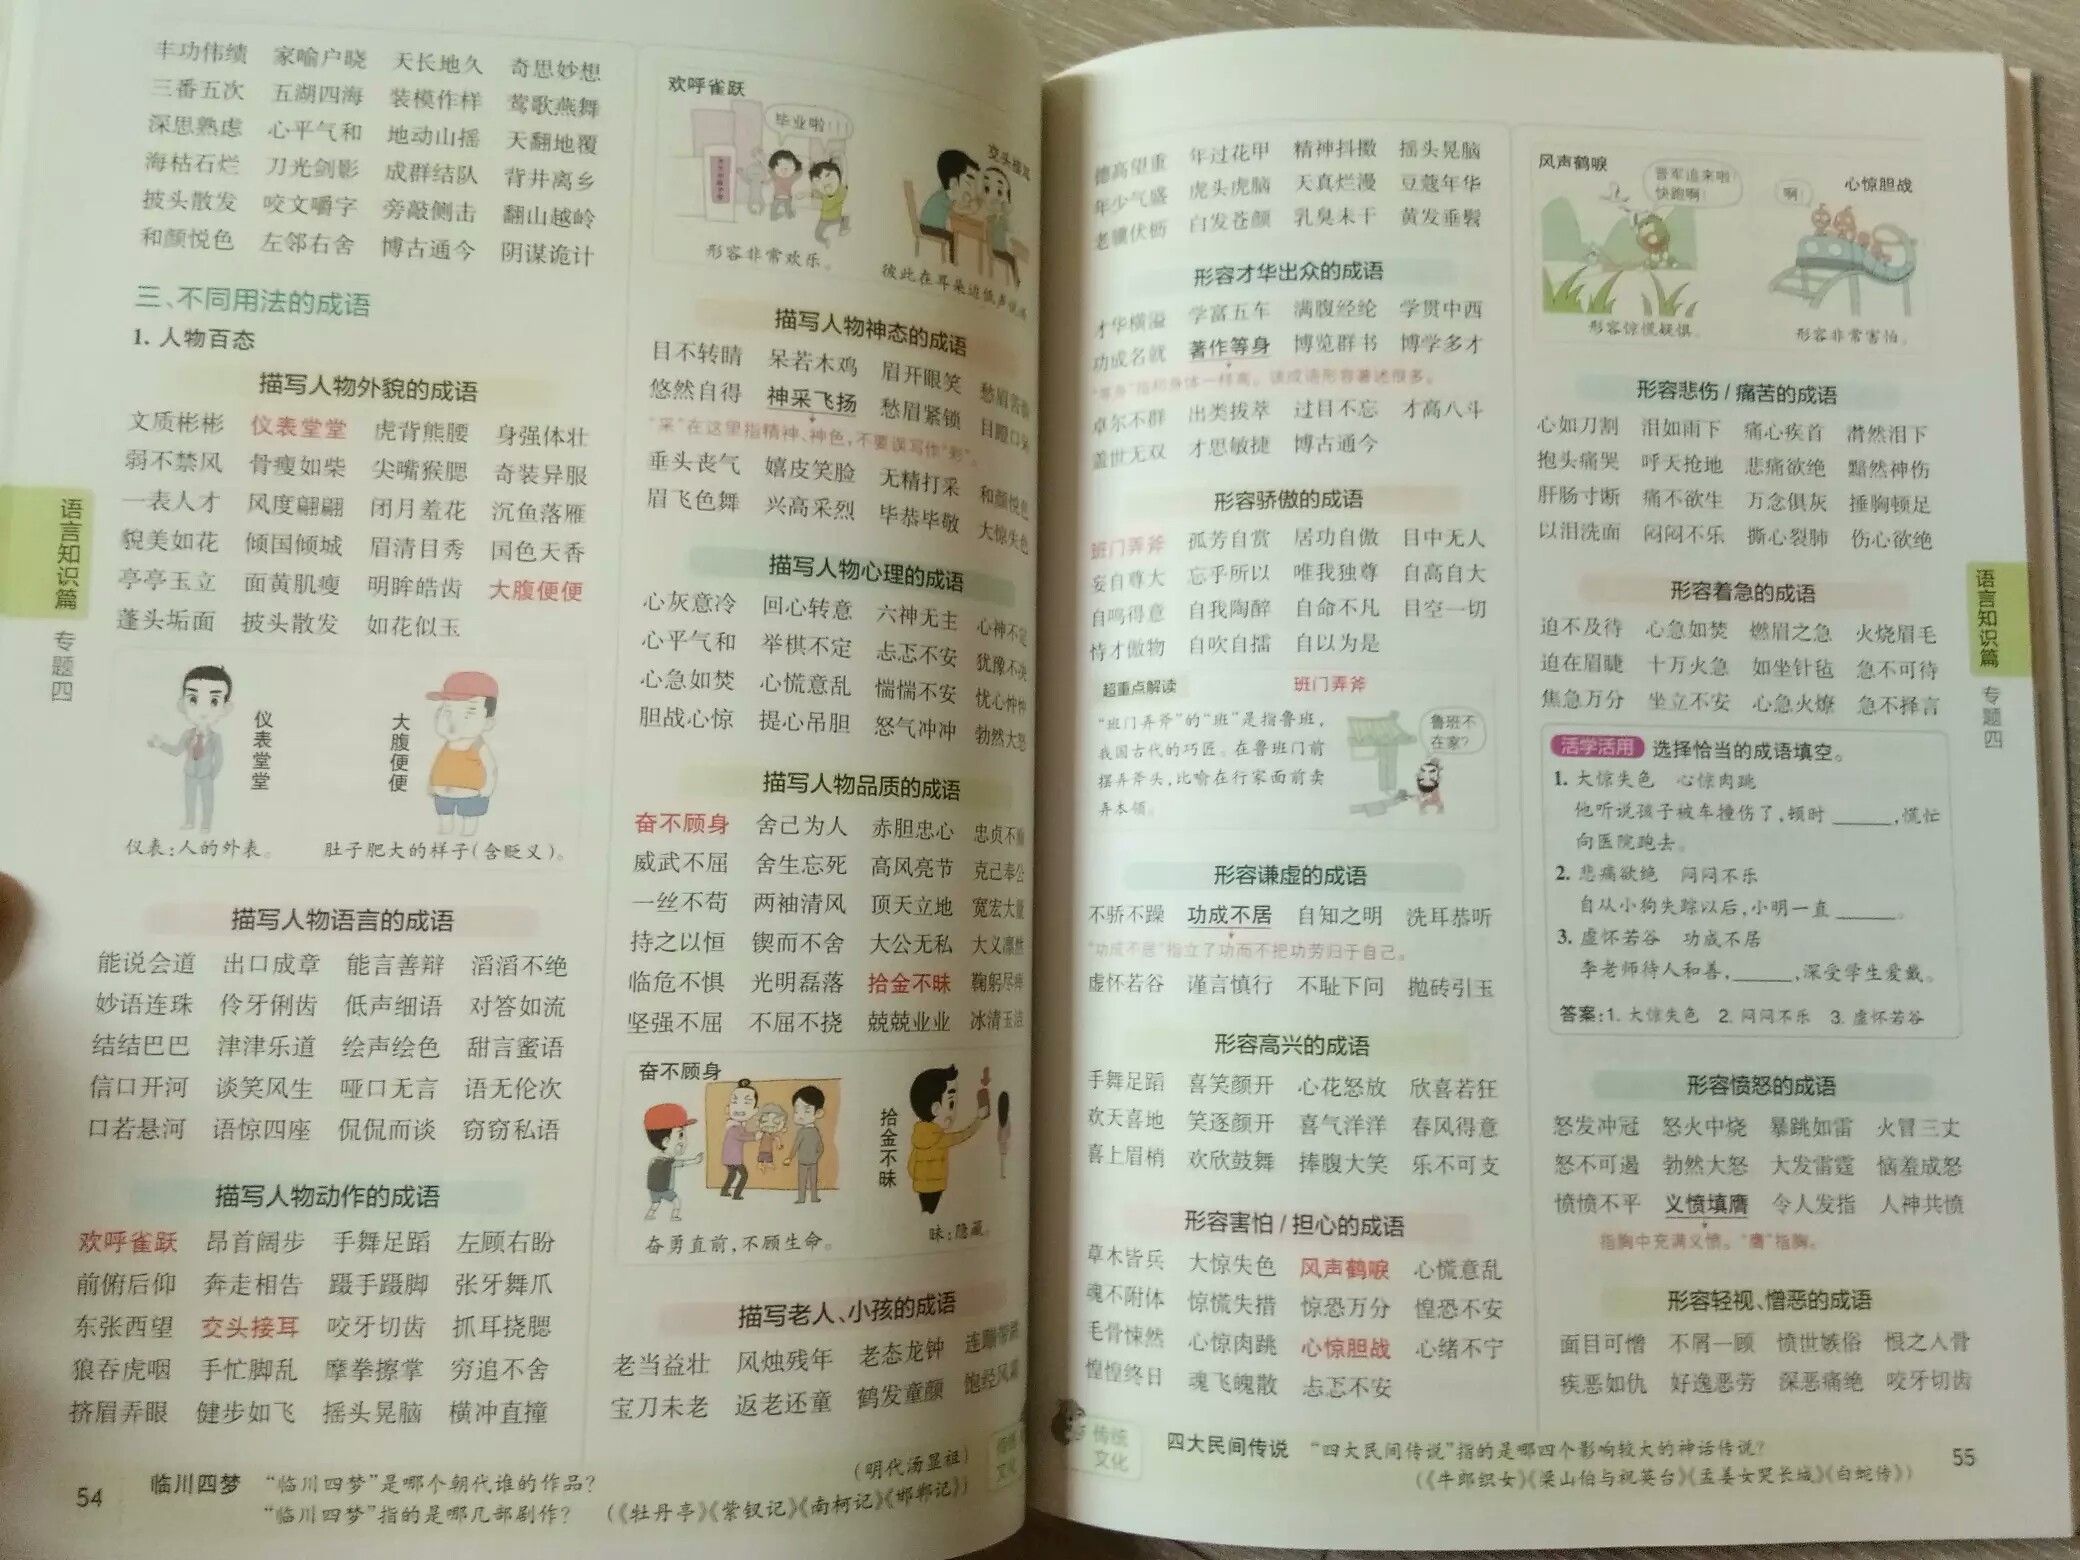 丰功伟绩 家喻户晓 天长地久 奇思妙想
三番五次 五湖四海 装模作样 莺歌燕舞
深思熟虑 心平气和 地动山摇 天翻地覆
海枯石烂 刀光剑影 成群结队 背井离乡
披头散发 咬文嚼字 旁敲侧击 翻山越岭
和颜悦色 左邻右舍 博古通今 阴谋诡计
三、不同用法的成语
1. 人物百态
描写人物外貌的成语
文质彬彬 仪表堂堂 虎背熊腰 身强体壮
弱不禁风 骨瘦如柴 尖嘴猴腮 奇装异服
一表人才 风度翩翩 闭月羞花 沉鱼落雁
貌美如花 倾国倾城 眉清目秀 国色天香
亭亭玉立 面黄肌瘦 明眸皓齿 大腹便便
蓬头垢面 披头散发 如花似玉
仪表堂堂
大腹便便
仪表:人的外表。 肚子肥大的样子(含贬义)。
描写人物语言的成语
能说会道 出口成章 能言善辩 滔滔不绝
妙语连珠 伶牙俐齿 低声细语 对答如流
结结巴巴 津津乐道 绘声绘色 甜言蜜语
信口开河 谈笑风生 哑口无言 语无伦次
口若悬河 语惊四座 侃侃而谈 窃窃私语
描写人物动作的成语
欢呼雀跃 昂首阔步 手舞足蹈 左顾右盼
前俯后仰 奔走相告 蹑手蹑脚 张牙舞爪
东张西望 交头接耳 咬牙切齿 抓耳挠腮
狼吞虎咽 手忙脚乱 摩拳擦掌 穷追不舍
挤眉弄眼 健步如飞 摇头晃脑 横冲直撞
欢呼雀跃
毕业啦!!!
交头接耳
形容非常欢乐。
彼此在耳朵边低声说话
描写人物神态的成语
目不转睛 呆若木鸡 眉开眼笑 愁眉苦
悠然自得 神采飞扬 愁眉紧锁 目瞪口呆
“采”在这里指精神、神色,不要误写作“彩”。
垂头丧气 嬉皮笑脸 无精打采 和颜悦色
眉飞色舞 兴高采烈 毕恭毕敬 大惊失色
描写人物心理的成语
心灰意冷 回心转意 六神无主 心神不定
心平气和 举棋不定 忐忑不安 犹豫不决
心急如焚 心慌意乱 惴惴不安 忧心忡忡
胆战心惊 提心吊胆 怒气冲冲 勃然大怒
描写人物品质的成语
奋不顾身 舍己为人 赤胆忠心 忠贞不渝
威武不屈 舍生忘死 高风亮节 克己奉公
一丝不苟 两袖清风 顶天立地 宽宏大量
持之以恒 锲而不舍 大公无私 大义凛然
临危不惧 光明磊落 拾金不昧 鞠躬尽瘁
坚强不屈 不屈不挠 兢兢业业 冰清玉洁
奋不顾身
拾金不昧
奋勇直前,不顾生命。
昧:隐藏。
描写老人、小孩的成语
老当益壮 风烛残年 老态龙钟
宝刀未老 返老还童 鹤发童颜 饱经风霜
54
临川四梦 “临川四梦”是哪个朝代谁的作品?
(明代汤显祖)
“临川四梦”指的是哪几部剧作? (《牡丹亭》《紫钗记》《南柯记》《邯郸记》)
语言知识篇
专题四
德高望重 年过花甲 精神抖擞 摇头晃脑
年少气盛 虎头虎脑 天真烂漫 豆蔻年华
老骥伏枥 白发苍颜 乳臭未干 黄发垂髫
形容才华出众的成语
才华横溢 学富五车 满腹经纶 学贯中西
功成名就 著作等身 博览群书 博学多才
“等身”指和身体一样高。该成语形容著述很多。
卓尔不群 出类拔萃 过目不忘 才高八斗
盖世无双 才思敏捷 博古通今
形容骄傲的成语
班门弄斧 孤芳自赏 居功自傲 目中无人
妄自尊大 忘乎所以 唯我独尊 自高自大
自鸣得意 自我陶醉 自命不凡 目空一切
恃才傲物 自吹自擂 自以为是
超重点解读 班门弄斧
“班门弄斧”的“班”是指鲁班,
我国古代的巧匠。在鲁班门前
摆弄斧头,比喻在行家面前卖
弄本领。
鲁班不
在家?
形容谦虚的成语
不骄不躁 功成不居 自知之明 洗耳恭听
“功成不居”指立了功而不把功劳归于自己。
虚怀若谷 谨言慎行 不耻下问 抛砖引玉
形容高兴的成语
手舞足蹈 喜笑颜开 心花怒放 欣喜若狂
欢天喜地 笑逐颜开 喜气洋洋 春风得意
喜上眉梢 欢欣鼓舞 捧腹大笑 乐不可支
形容害怕/担心的成语
草木皆兵 大惊失色 风声鹤唳 心慌意乱
魂不附体 惊慌失措 惊恐万分 惶恐不安
毛骨悚然 心惊肉跳 心惊胆战 心绪不宁
惶惶终日 魂飞魄散 忐忑不安
风声鹤唳
晋军追来啦!
快跑啊!
啊!
心惊胆战
形容惊慌疑惧。
形容非常害怕。
形容悲伤/痛苦的成语
心如刀割 泪如雨下 痛心疾首 潸然泪下
抱头痛哭 呼天抢地 悲痛欲绝 黯然神伤
肝肠寸断 痛不欲生 万念俱灰 捶胸顿足
以泪洗面 闷闷不乐 撕心裂肺 伤心欲绝
形容着急的成语
迫不及待 心急如焚 燃眉之急 火烧眉毛
迫在眉睫 十万火急 如坐针毡 急不可待
焦急万分 坐立不安 心急火燎 急不择言
活学活用 选择恰当的成语填空。
1. 大惊失色 心惊肉跳
他听说孩子被车撞伤了,顿时______,慌忙
向医院跑去。
2. 悲痛欲绝 闷闷不乐
自从小狗失踪以后,小明一直______。
3. 虚怀若谷 功成不居
李老师待人和善,______,深受学生爱戴。
答案:1. 大惊失色 2. 闷闷不乐 3. 虚怀若谷
形容愤怒的成语
怒发冲冠 怒火中烧 暴跳如雷 火冒三丈
怒不可遏 勃然大怒 大发雷霆 恼羞成怒
愤愤不平 义愤填膺 令人发指 人神共愤
指胸中充满义愤。“膺”指胸。
形容轻视、憎恶的成语
面目可憎 不屑一顾 愤世嫉俗 恨之入骨
疾恶如仇 好逸恶劳 深恶痛绝 咬牙切齿
传统
文化
四大民间传说 “四大民间传说”指的是哪四个影响较大的神话传说?
(《牛郎织女》《梁山伯与祝英台》《孟姜女哭长城》《白蛇传》)
55
语言知识篇
专题四